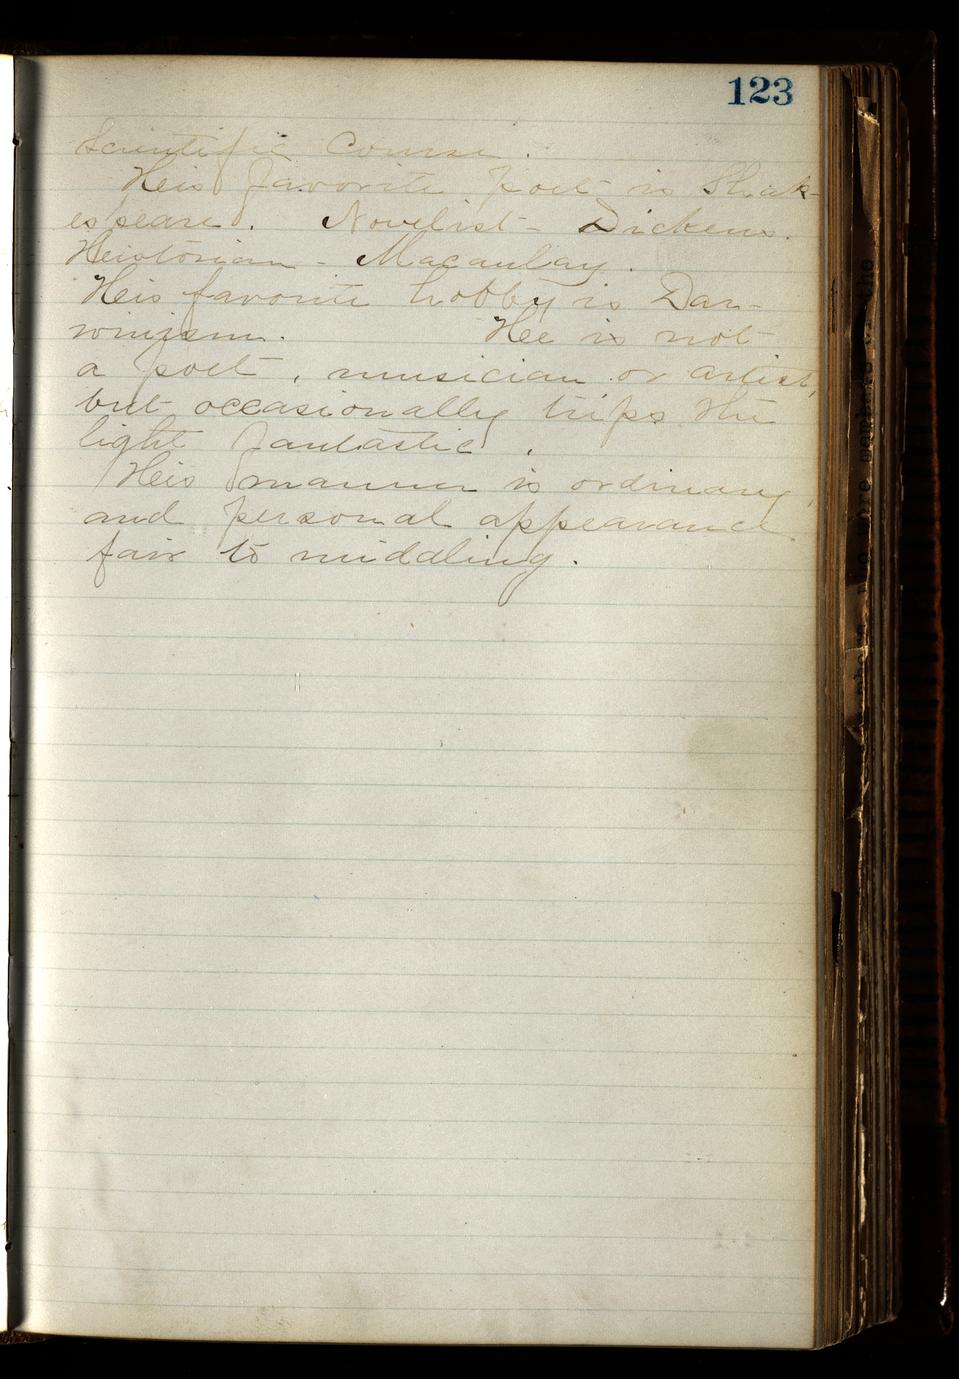 123
Scientific Course.
His favorite poet is Shak-
espeare. Novelist - Dickens.
Historian - Macaulay.
His favorite hobby is Dar-
winism. He is not
a poet, musician or artist,
but occasionally trips the
light fantastic.
His manner is ordinary,
and personal appearance
fair to middling.